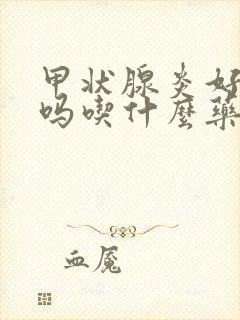 甲状腺炎好
吗喫什麼藥
血魇